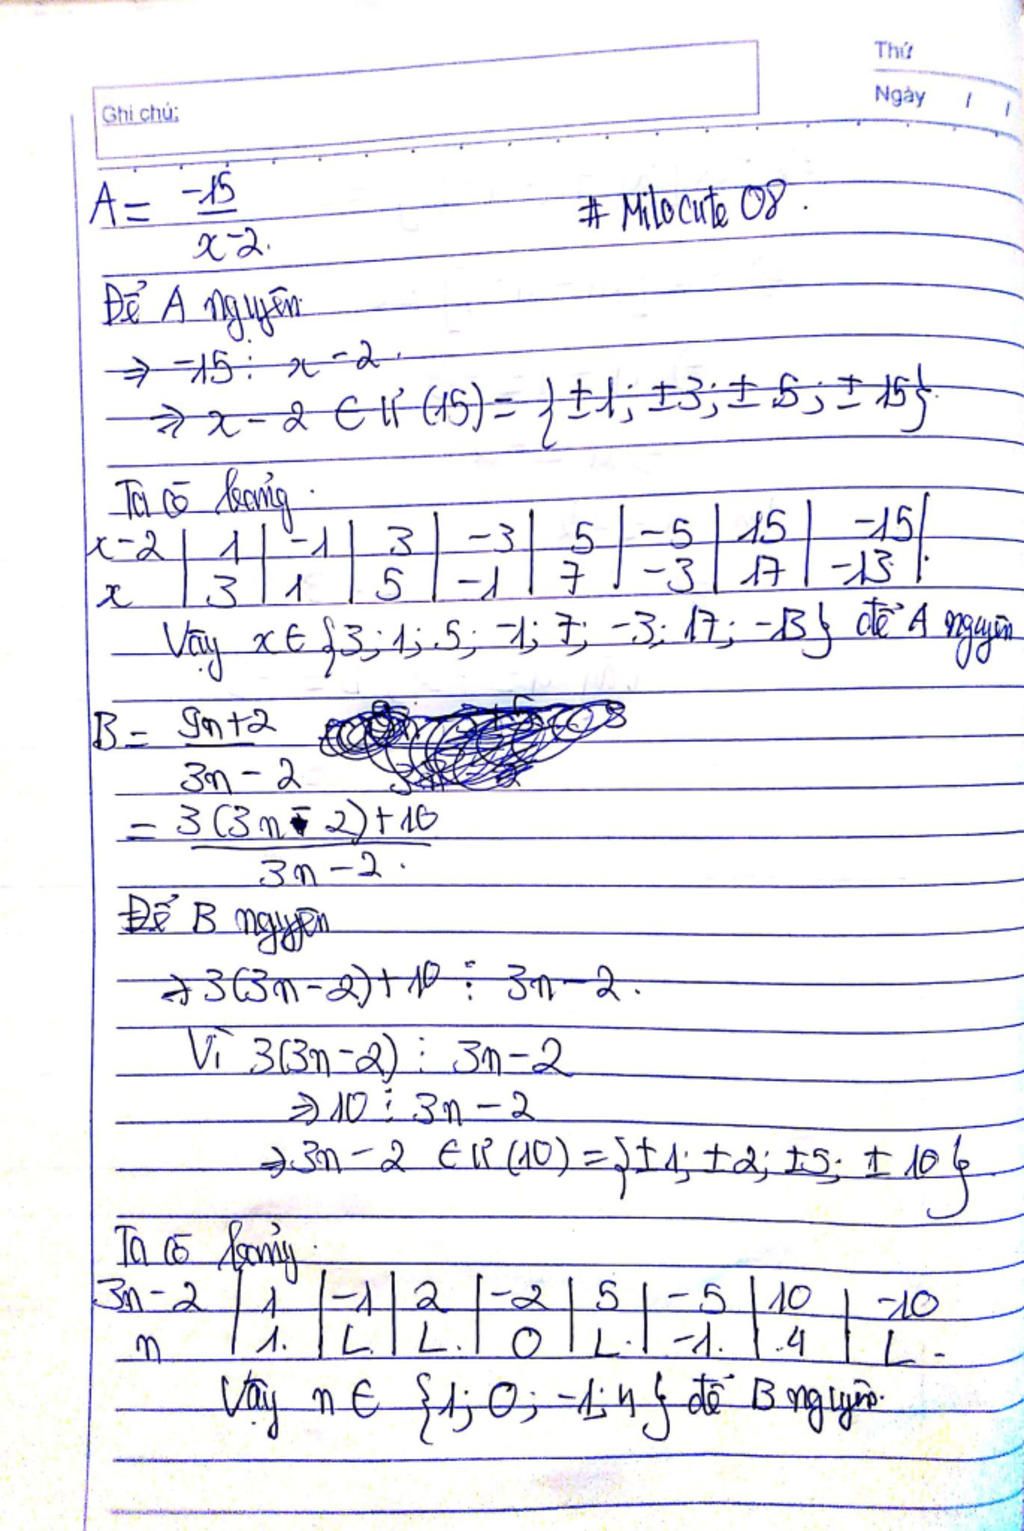 Thứ
Ghi chú:
Ngày / /
A = -15 / x-2.
# Milocute 08.
Để A nguyên
⇒ -15 ⋮ x-2.
⇒ x-2 ∈ Ư(15) = {±1; ±3; ±5; ±15}.
Ta có bảng.
x-2 | 1 | -1 | 3 | -3 | 5 | -5 | 15 | -15 |
x | 3 | 1 | 5 | -1 | 7 | -3 | 17 | -13 |.
Vậy x ∈ {3; 1; 5; -1; 7; -3; 17; -13} để A nguyên
B = 9n+2 / 3n-2
= 3(3n-2)+10 / 3n-2.
Để B nguyên
⇒ 3(3n-2)+10 ⋮ 3n-2.
Vì 3(3n-2) ⋮ 3n-2
⇒ 10 ⋮ 3n-2
⇒ 3n-2 ∈ Ư(10) = {±1; ±2; ±5; ±10}
Ta có bảng.
3n-2 | 1 | -1 | 2 | -2 | 5 | -5 | 10 | -10
n | 1. | L. | L. | 0 | L. | -1. | .4 | L.
Vậy n ∈ {1; 0; -1; 4} để B nguyên.